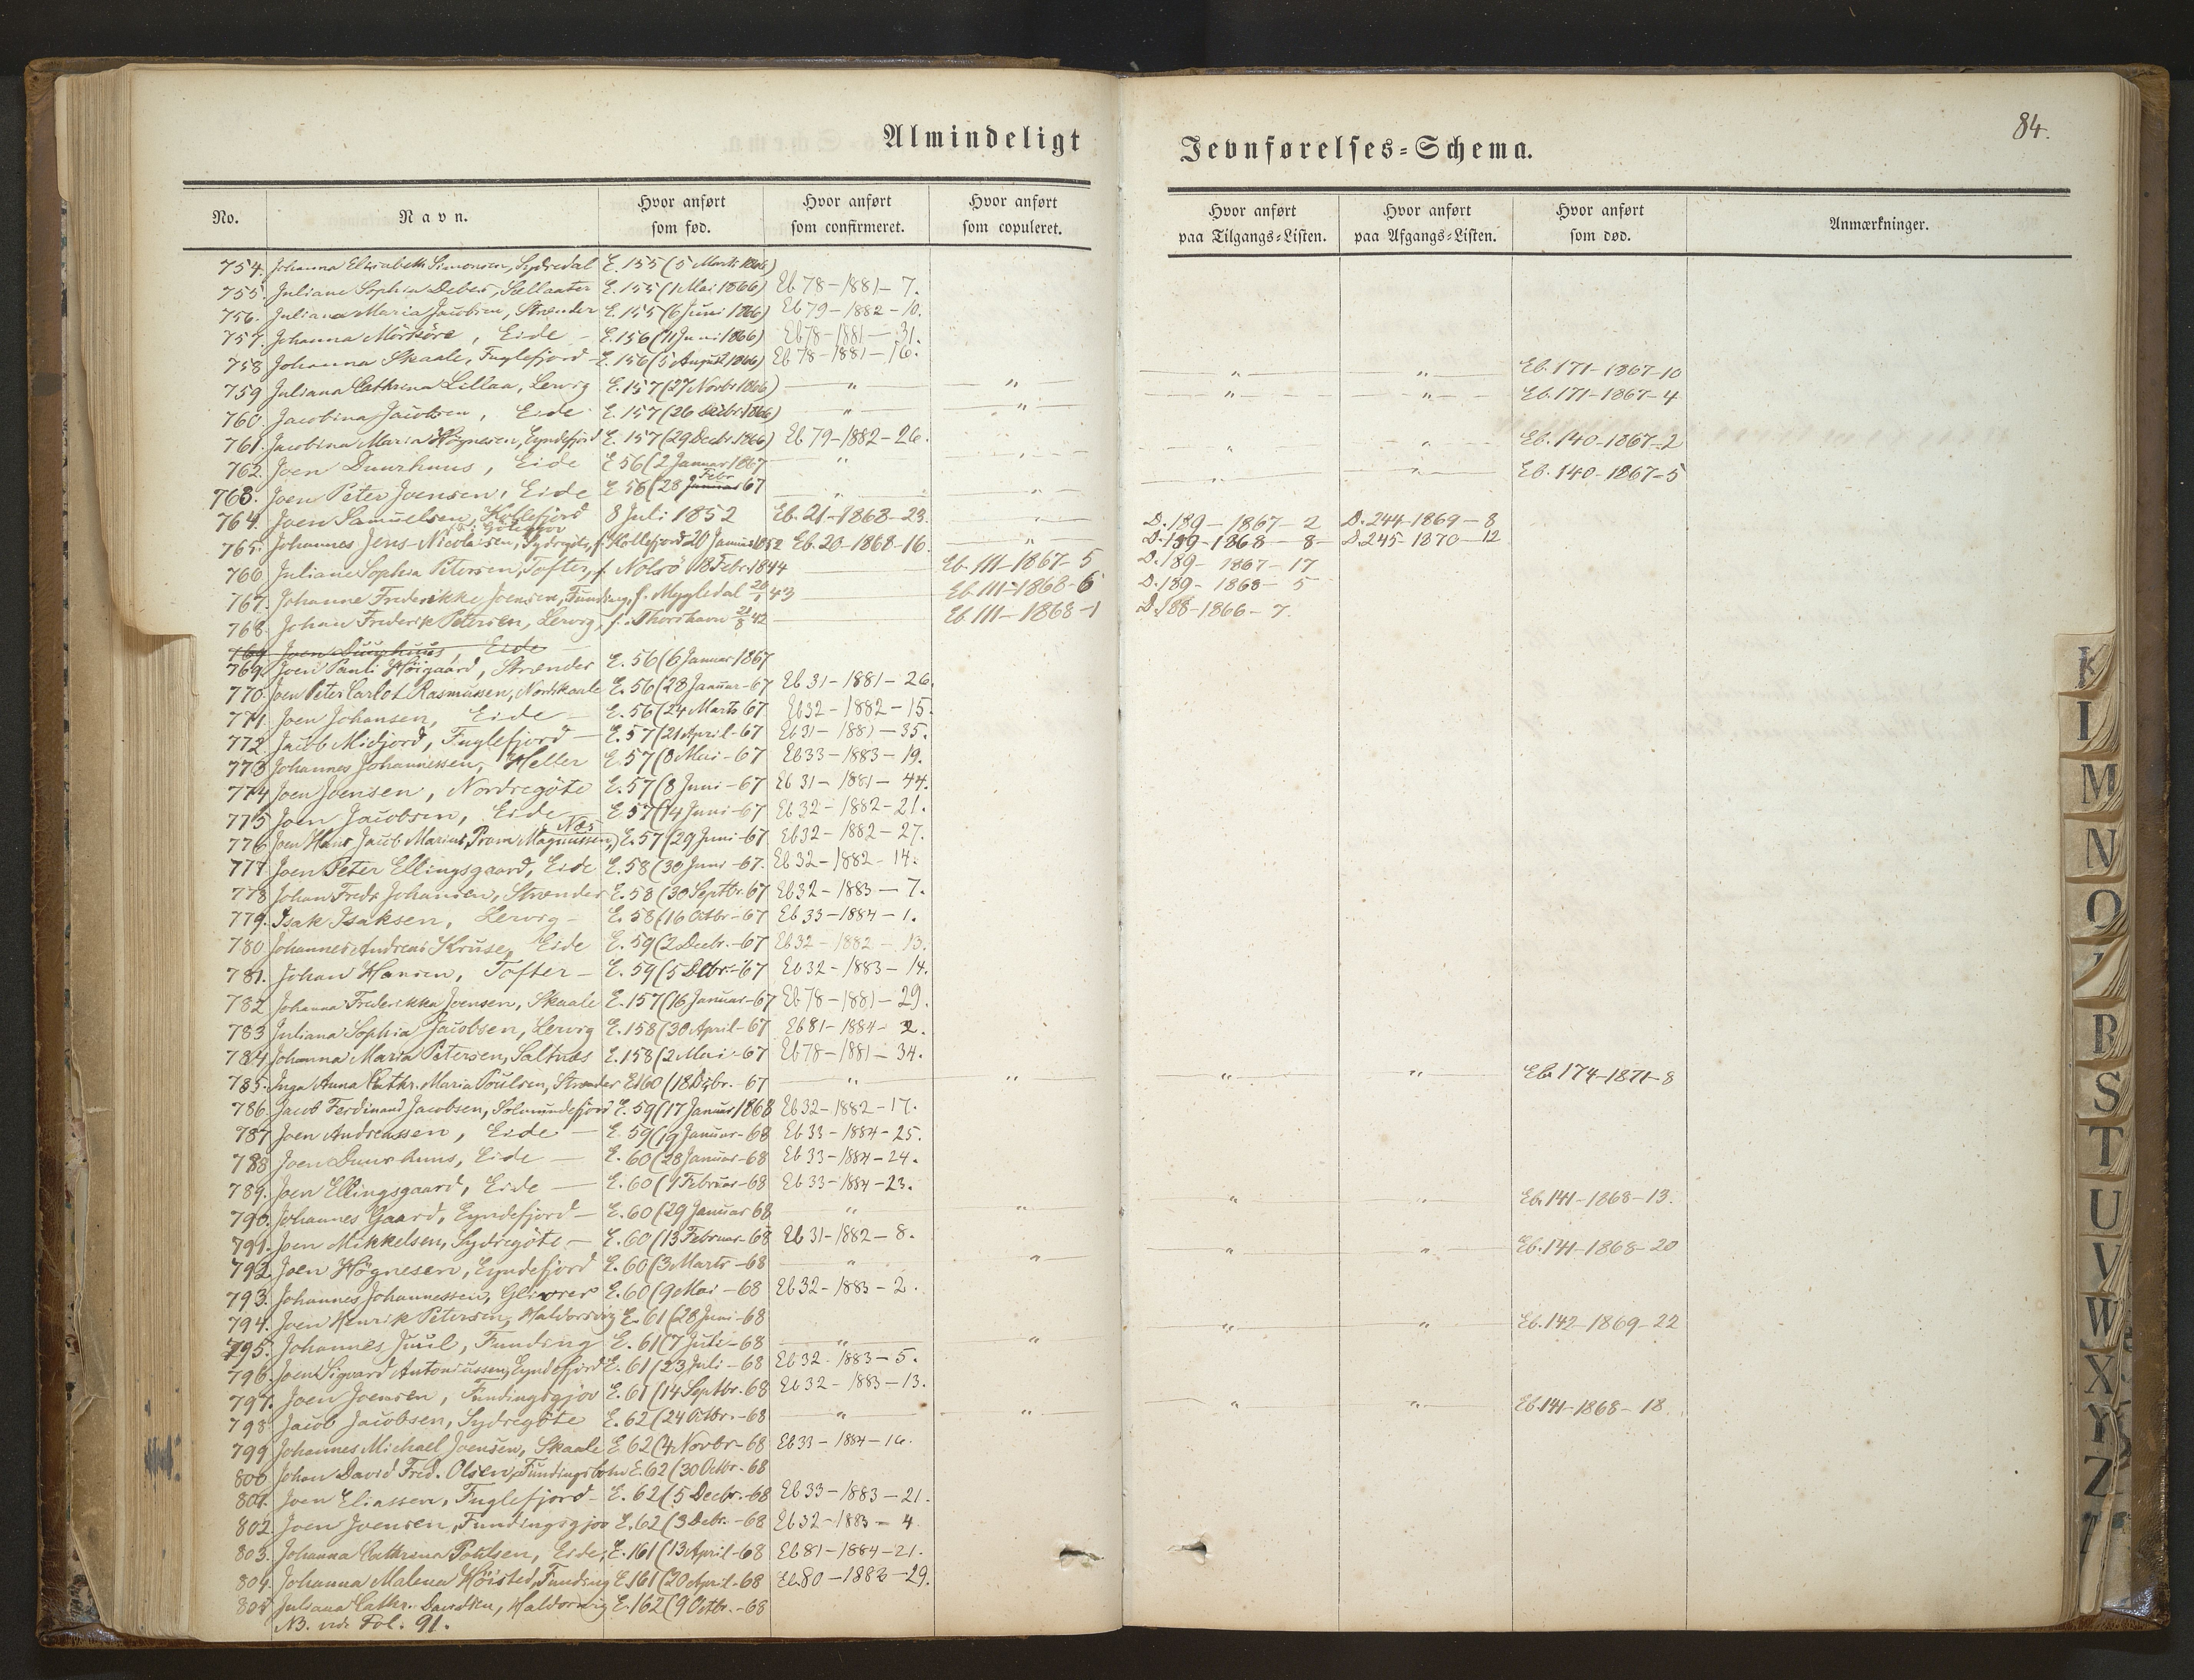 84.
Almindeligt Jevnførelses=Schema.
No. Navn. Hvor anført som fød. Hvor anført som confirmeret. Hvor anført som copuleret. Hvor anført paa Tilgangs=Listen. Hvor anført paa Afgangs=Listen. Hvor anført som død. Anmærkninger.
754. Johanna Elisabeth Simonsen, Sydredal E. 155 (5 Marts 1866)
755. Juliane Sophia Debes, Sellaater E. 155 (1 Mai 1866) Eb 78-1881-7.
756. Juliana Maria Jacobsen, Strænder E. 155 (6 Juni 1866) Eb 79-1882-10.
757. Johanna Mörköre, Eide – E. 156 (11 Juni 1866) Eb 78-1881-31.
758 Johanna Skaale, Fuglefjord – E. 156 (5 August 1866) Eb 78-1881-16.
759 Juliana Cathrina Lillaa, Lervig E. 157 (27 Novbr 1866) " " " " Eb. 171-1867-10
760. Jacobina Jacobsen, Eide E. 157 (26 Decbr 1866) " " " " Eb. 171-1867-4
761. Jacobina Maria Högnesen, Eyndefjord E. 157 (29 Decbr. 1866) Eb 79-1882-26.
762. Joen Duurhuus, Eide E 56 (2 Januar 1867 " " " " Eb. 140-1867-2
763. Joen Peter Joensen, Eide E 56 (28 Januar Febr 67 " " " " Eb. 140-1867-5
764. Joen Samuelsen, Kollefjord 8 Juli 1852 Eb. 21-1868-23. " D. 189-1867-2 D. 244-1869-8
765. Johannes Jens Nicolaisen, Sydregöte, f. Kollefjord 20 Januar 1852 Eb. 20-1868-16. " D. 189-1868-8- D. 245-1870-12
766 Juliane Sophia Petersen, Tofter, f. Nolsö 18 Febr. 1844 Eb. 111-1867-5 D. 189-1867-17
767. Johanne Frederikke Joensen, Funding, f. Mygledal 20/1 43 Eb. 111-1868-6 D. 189-1868-5
768. Johan Frederik Petersen, Lervig, f. Thorshavn 21/8 42 Eb. 111-1868-1 D. 188-1866-7.
769 Joen Duurhuus, Eide
769. Joen Pauli Höigaard, Strænder E. 56 (6 Januar 1867
770. Joen Peter Carlot Rasmussen, Nordskaale E. 56 (28 Januar-67 Eb 31-1881-26.
771. Joen Johansen, Eide – E. 56 (24 Marts 67 Eb 32-1882-15.
772. Jacob Midjord, Fuglefjord – E. 57 (21 April-67 Eb 31-1881-35.
773 Johannes Johannessen, Heller E. 57 (8 Mai-67 Eb 33-1883-19.
774 Joen Joensen, Nordregöte E. 57 (8 Juni-67 Eb 31-1881-44.
775 Joen Jacobsen, Eide E 57 (14 Juni-67 Eb 32-1882-21.
776. Joen Hans Jacob Marius, Prom Magnussen, Næs E. 57 (29 Juni-67 Eb 32-1882-27.
777 Joen Peter Ellingsgaard, Eide E. 58 (30 Juni-67. Eb 32-1882-14.
778 Johan Fredr Johansen, Strænder E. 58 (30 Septbr. 67 Eb 32-1883-7.
779. Isak Isaksen, Lervig – E. 58 (16 Octbr-67 Eb 33-1884-1.
780 Johannes Andreas Kruse, Eide E. 59 (2 Decbr.-67 Eb 32-1882-13.
781. Johan Hansen, Tofter – E. 59 (5 Dcbr.-67 Eb 32-1883-14.
782. Johanna Frederikka Joensen, Skaale E. 157 (16 Januar-67 Eb 78-1881-29.
783 Juliana Sophia Jacobsen, Lervig E. 158 (30 April-67 Eb 81-1884-2.
784 Johanna Maria Petersen, Saltnæs E. 158 (2 Mai-67 Eb 78-1881-34.
785. Inga Anna Cathr. Maria Poulsen, Strænder E160 (18 Dcbr. 67 " " " " Eb. 174-1871-8
786. Jacob Ferdinand Jacobsen, Solmundefjord E. 59 (17 Januar 1868 Eb 32-1882-17.
787 Joen Andreassen, Eide – E. 59 (19 Januar-68 Eb 33-1884-25.
788 Joen Duurhuus, Eide – E. 60 (28 Januar-68 Eb 33-1884-24.
789. Joen Ellingsgaard, Eide – E. 60 (9 Februar-68 Eb 33-1884-23.
790. Johannes Gaard, Eyndefjord – E. 60 (29 Januar 68 " " " " Eb. 141-1868-13.
791. Joen Mikkelsen, Sydregöte – E. 60 (13 Februar-68 Eb 31-1882-8.
792. Joen Högnesen, Eyndefjord E. 60 (3 Marts-68 " " " " Eb. 141-1868-20
793. Johannes Johannessen, Glivrer E. 60 (9 Mai-68 Eb 32-1883-2.
794. Joen Henrik Petersen, Haldorsvig E. 61 (28 Juni-68
795. Johannes Juul, Funding E. 61 (7 Juli-68 " " " " Eb. 142-1869-22
796. Joen Sigvard Antoniussen, Eyndefjord E. 61 (23 Juli-68 Eb 32-1883-5.
797. Joen Joensen, Fundingsgjov E. 61 (14 Septbr. 68 Eb 32-1883-13.
798. Jacob Jacobsen, Sydregöte E. 62 (24 Octbr.-68 " " " " Eb. 141-1868-18.
799 Johannes Michael Joensen, Skaale E 62 (4 Novbr-68 Eb 33-1884-16.
800 Johan David Fred. Olsen, Fundingsbotn E. 62 (30 Octbr. 68
801. Joen Eliassen, Fuglefjord – E. 62 (5 Decbr.-68 Eb 33-1883-21.
802. Joen Joensen, Fundingsgjov E. 62 (3 Debr.-68 Eb 32-1883-4.
803. Johanna Cathrina Poulsen, Eide, E. 161 (13 April-68 Eb 81-1884-21.
804. Johanna Malena Höisted, Funding E. 161 (20 April-68 Eb. 80-1883-29.
805 Juliana Cathr. Davidsen, Haldorsvig E. 162 (9 Octbr.-68
NB. vide Fol. 91.
K
I
M
N
O
R
S
T
U
V
W
X
Y
Z